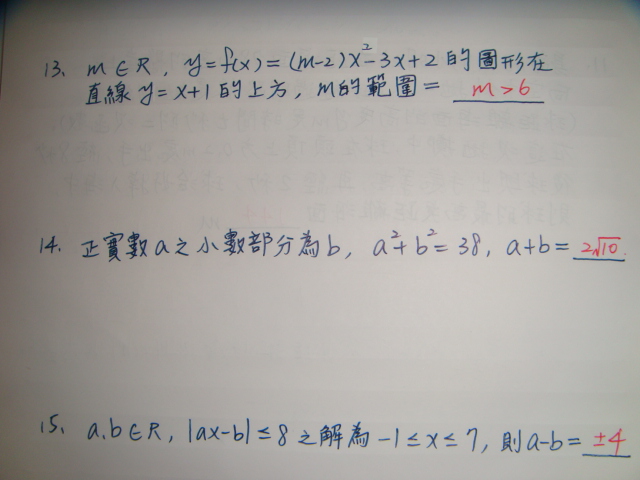 13. m∈R, y=f(x)=(m-2)x²-3x+2 的圖形在
直線 y=x+1 的上方, m的範圍= m>6
14. 正實數a之小數部分為b, a²+b²=38, a+b= 2√10
15. a,b∈R, |ax-b|≤8 之解為 -1≤x≤7, 則a-b= ±4